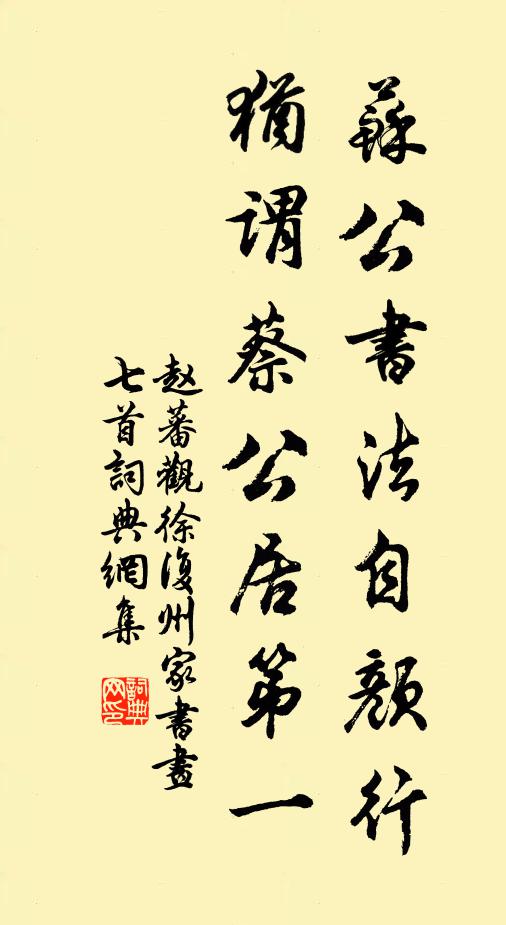 蘇公書法自顏行
猶謂蔡公居第一
赵蕃觀徐復州家書畫
七首詞典網集
詞典
网印